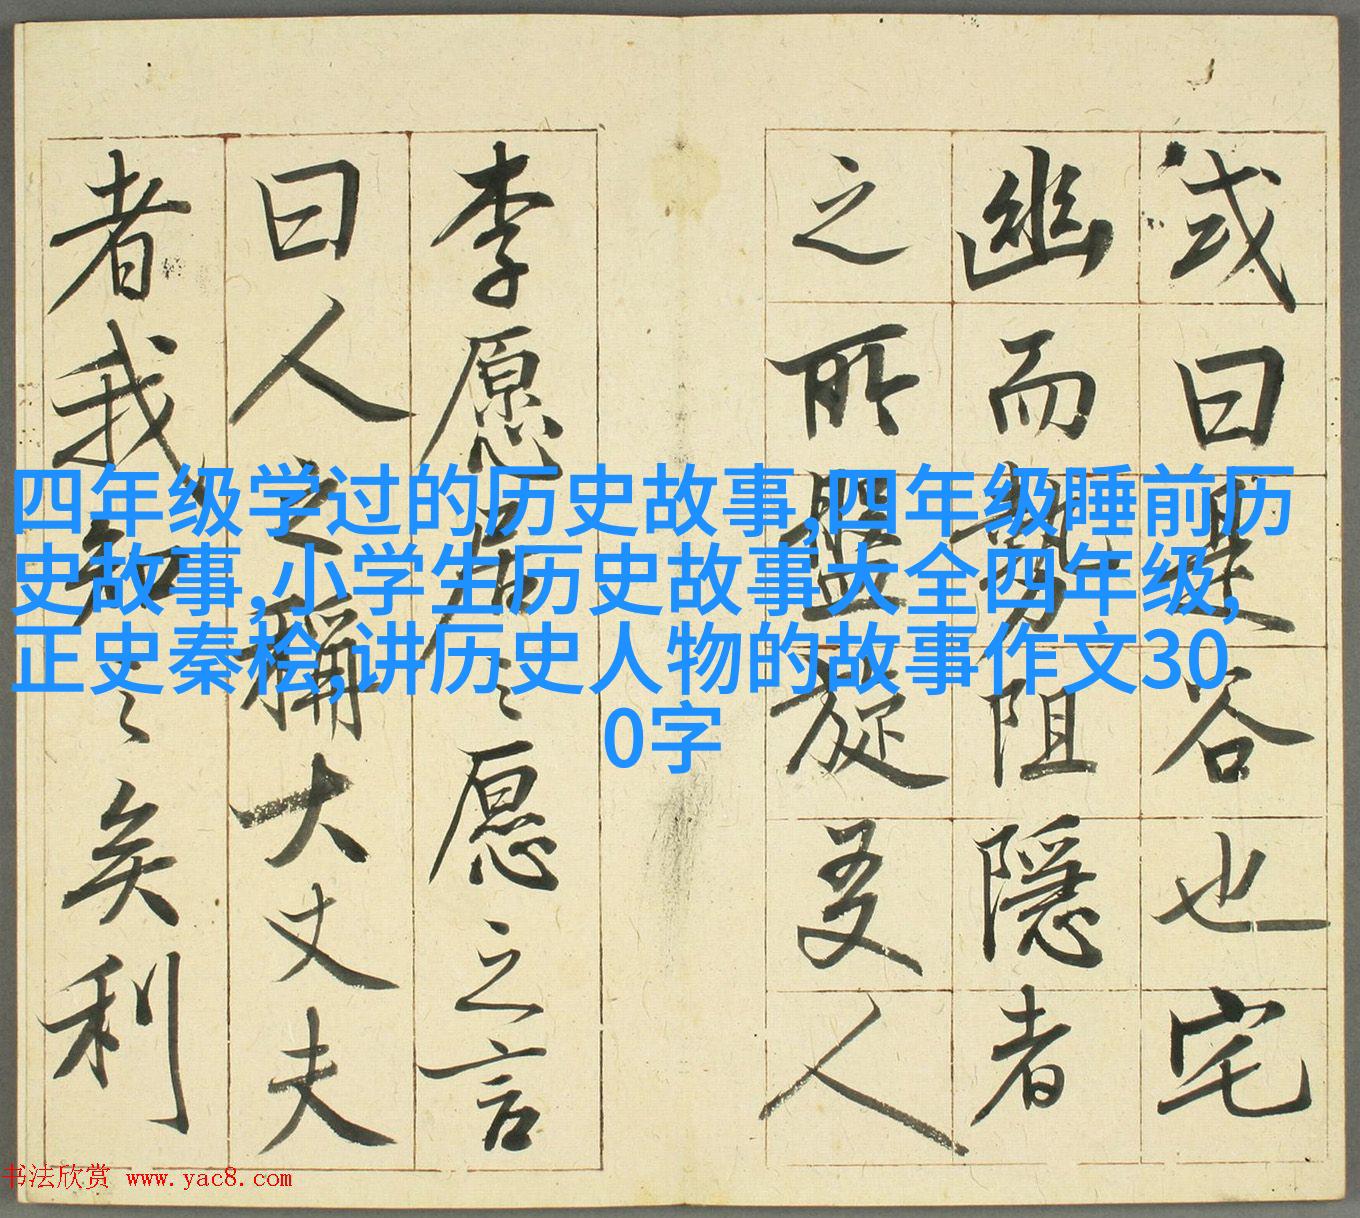 四年级学过的历史故事,四年级睡前历
史故事,小学生历史故事大全四年级,
正史秦桧,讲历史人物的故事作文30
0字
或曰是谷也宅
幽而勢阻隱者
之所盤旋友人
李愿居之愿之言
曰人之稱大丈夫
者我知之矣利
书法欣赏 www.yac8.com